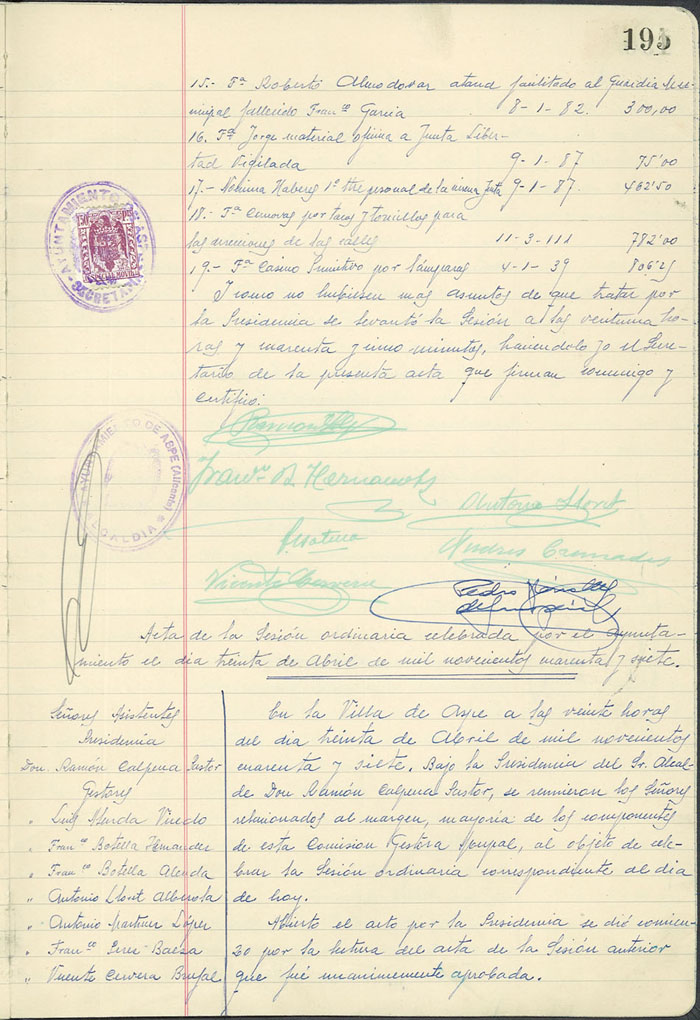 195
15.- Fª Roberto Almodovar ataud facilitado al Guardia Mu-
nicipal fallecido Fran.co Garcia 8-1-82. 300,00
16. Fª Jorge material oficina a Junta Liber-
tad Vigilada 9-1-87 75'00
17.- Nomina Haberes 1º tre personal de la misma Junta 9-1-87. 462'50
18.- Fª Canovas por tacos y tornillos para
las inscripciones de las calles 11-3-111 782'00
19.- Fª Casino Primitivo por lámparas 4-1-39 806'25
Y como no hubiesen más asuntos de que tratar por
la Presidencia se levantó la Sesión a las veintiuna ho-
ras y cuarenta y cinco minutos, haciendolo yo el Secre-
tario de la presente acta que firman conmigo y
certifico:
AYUNTAMIENTO DE ASPE
SECRETARIA
AYUNTAMIENTO DE ASPE (Alicante)
ALCALDIA
Fran.co B. Hernandez
Antonio Lloret
Andres Cremades
Vicente Cervera
Pedro
Acta de la Sesión ordinaria celebrada por el Ayunta-
miento el dia treinta de Abril de mil novecientos cuarenta y siete.
Señores Asistentes
Presidencia
Don. Ramón Calpena Pastor
Gestores
" Luis Almda Viredo
" Fran.co Botella Hernandez
" Fran.co Botella Alenda
" Antonio Lloret Alberola
" Antonio Martinez López
" Fran.co Erres Baeza
" Vicente Cervera Brufal
En la Villa de Aspe a las veinte horas
del dia treinta de Abril de mil novecientos
cuarenta y siete. Bajo la Presidencia del Sr. Alcal-
de Don Ramón Calpena Pastor, se reunieron los Señores
relacionados al margen, mayoria de los componentes
de esta Comision Gestora Mnpal, al objeto de cele-
brar la Sesión ordinaria correspondiente al dia
de hoy.
Abierto el acto por la Presidencia se dió comien-
zo por la lectura del acta de la Sesión anterior
que fué unanimemente aprobada.